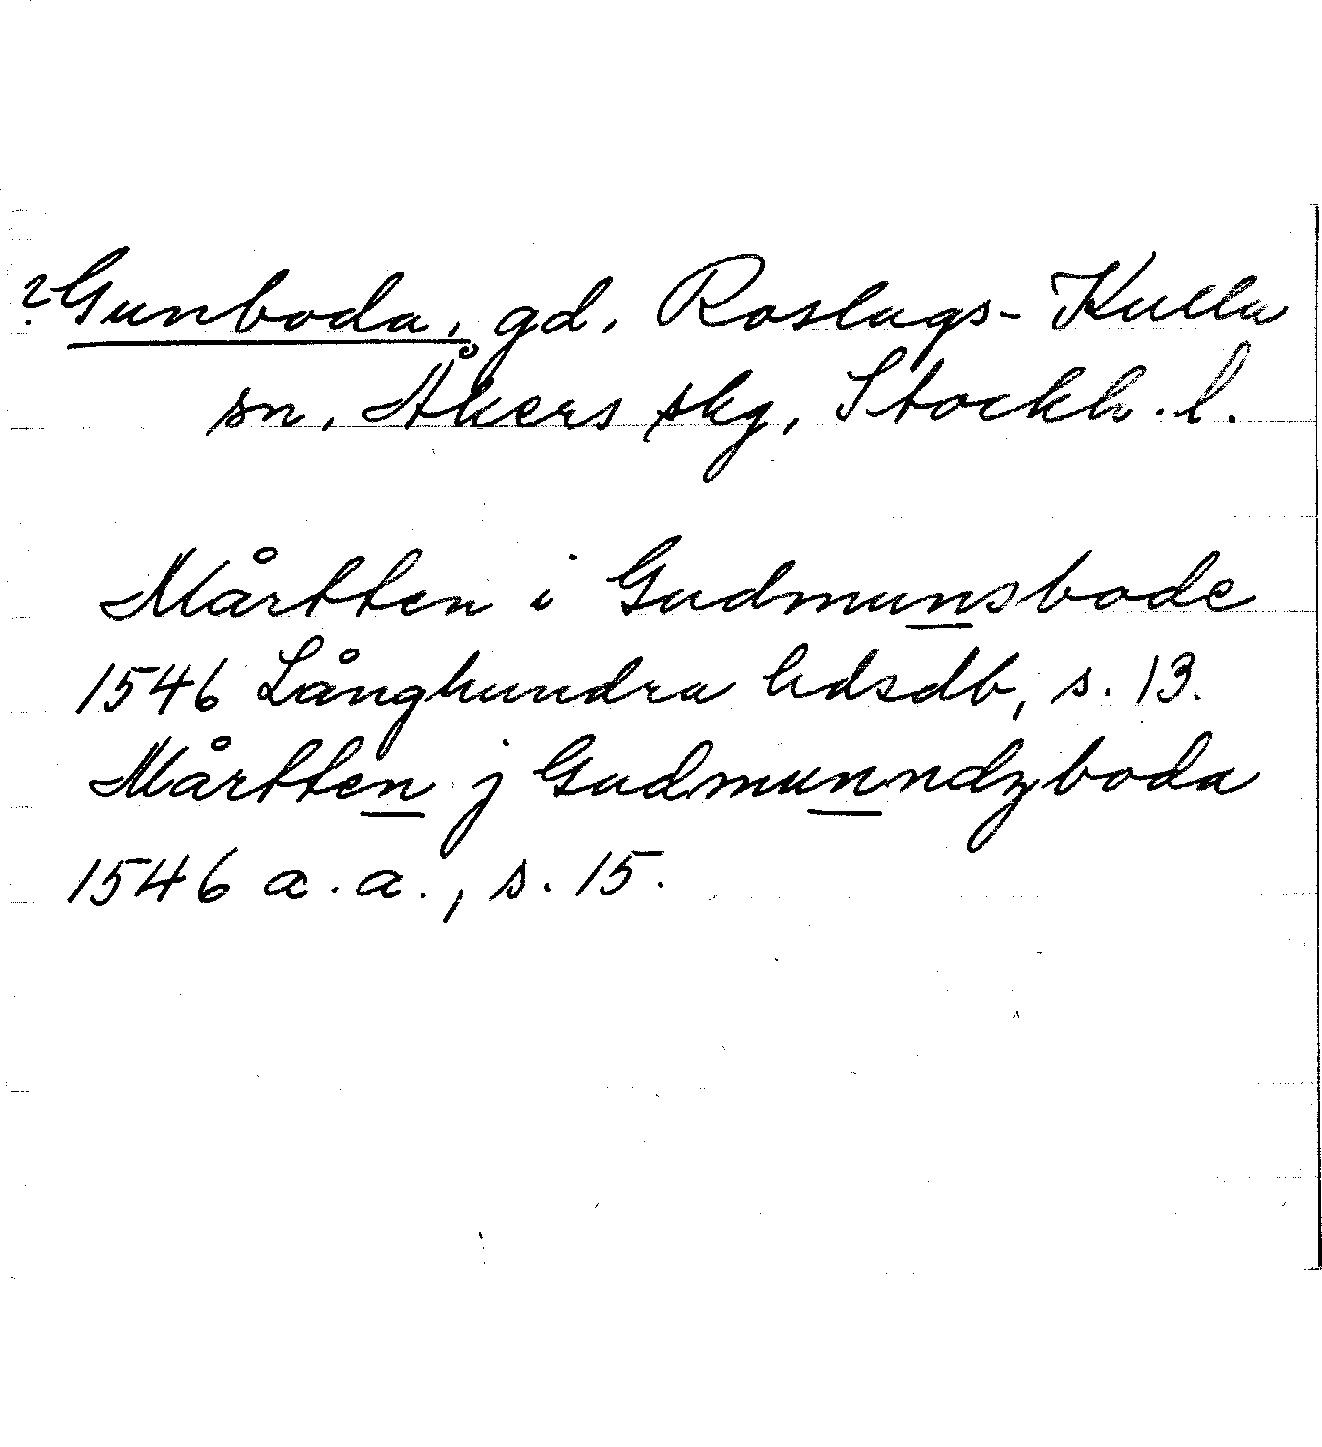 ? Gunboda, gd, Roslags-Kulla
sn, Åkers skg, Stockh. l.
Mårtten i Gudmunsbode
1546 Långhundra hdsdb, s. 13.
Mårtten j Gudmunndzboda
1546 a.a., s. 15.